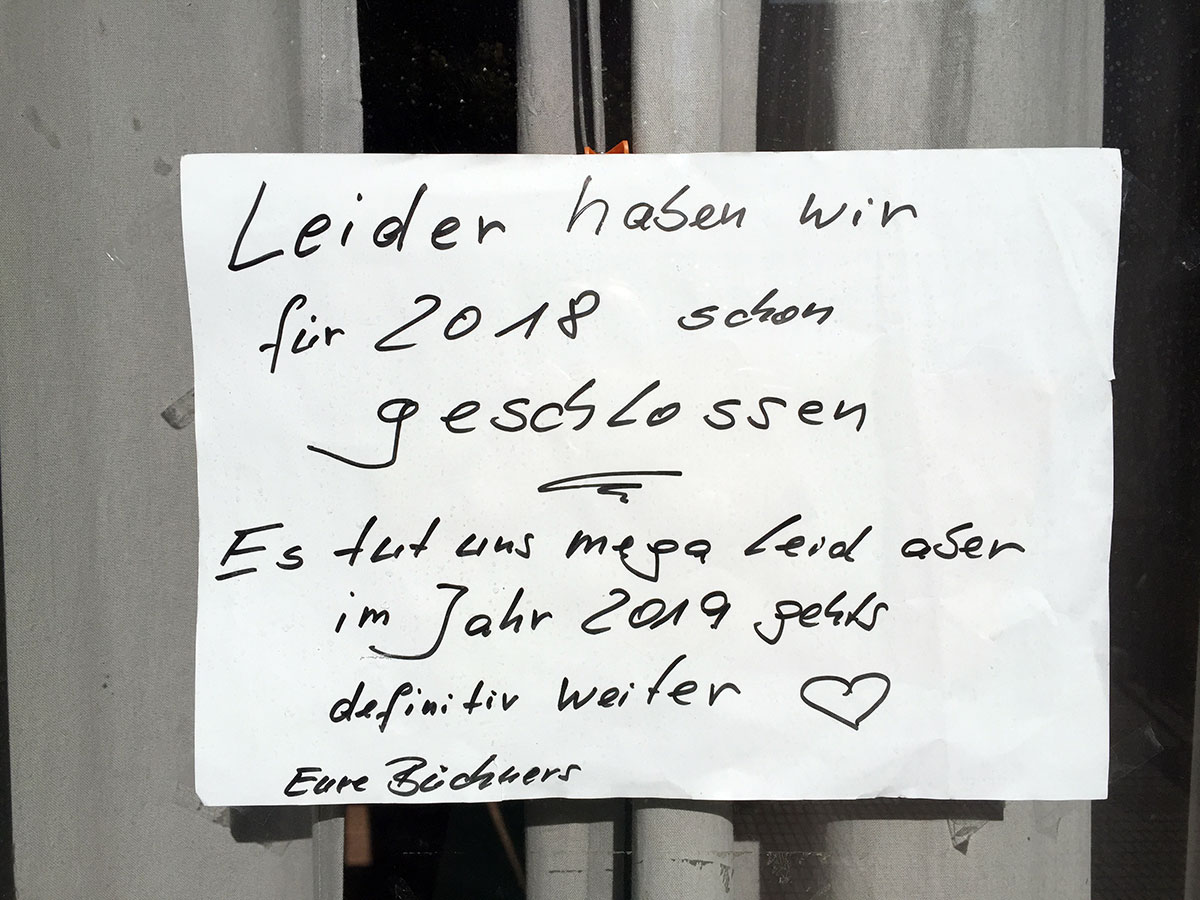 Leider haben wir
für 2018 schon
geschlossen
Es tut uns mega Leid aber
im Jahr 2019 gehts
definitiv weiter
Eure Büchners